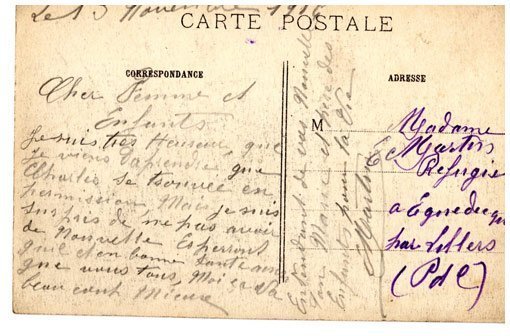 Le 13 Novembre 191
CARTE POSTALE
CORRESPONDANCE
ADRESSE
Cher Femme et
Enfants
Je suis tres Heureux que
Je viens d'aprendre que
Charles se trouvee en
permission, Mais je suis
surpris de ne pas avoir
de Nouvelle Esperont
qu'il et en bonne Santé ainsi
que vous tous, Moi ça va
beaucout Mieux
En tendant de vos Nouvelle
Mari et Père des
Enfants pour la Vie
E Martin
M
Madame
Martin
Refugie
a
par Lillers
(PdC)